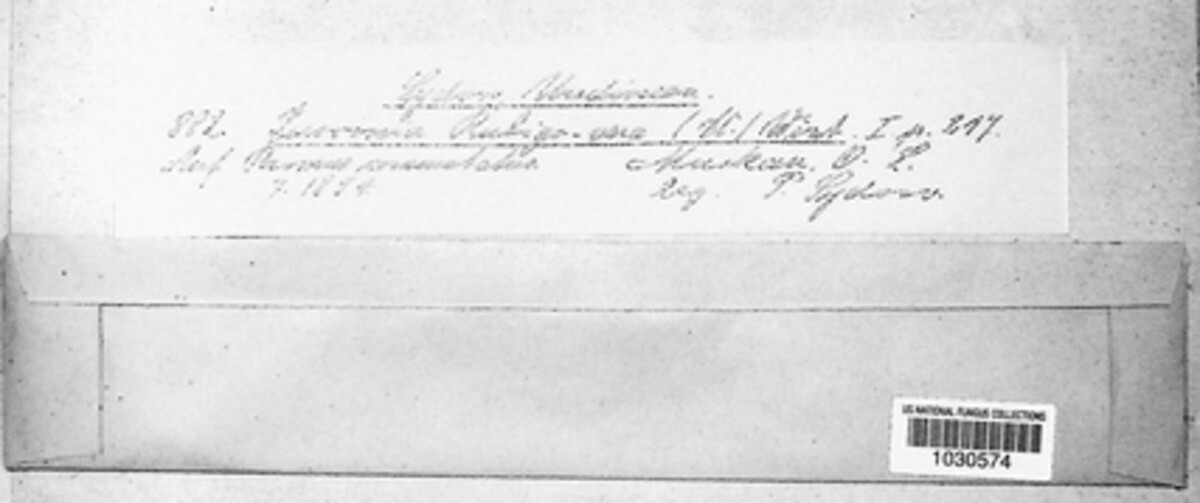 Sydow, Uredineen.
882. Puccinia Rubigo-vera (DC.) Wint. I p. 217.
Auf Bromus commutatus Muskau, O. L.
7. 1894 leg. P. Sydow.
US NATIONAL FUNGUS COLLECTIONS
1030574